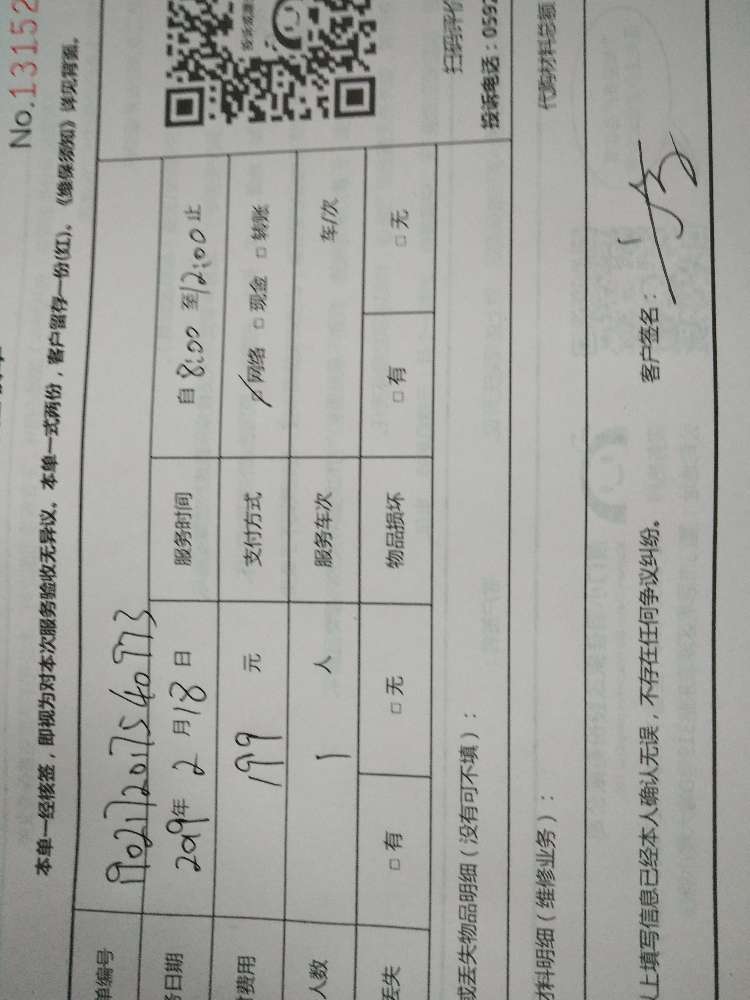 No.13152
本单一经核签，即视为对本次服务验收无异议。本单一式两份，客户留存一份(红)。《维保须知》详见背面。
单编号 1902172017540773
务日期 2019年 2 月 18 日 服务时间 自 8:00 至 12:00 止
费用 199 元 支付方式 □网络 □现金 □转账
人数 1 人 服务车次 车/次
丢失 □有 □无 物品损坏 □有 □无
扫码评价
投诉电话：0592
或丢失物品明细（没有可不填）：
材料明细（维修业务）： 代购材料总额
上填写信息已经本人确认无误，不存在任何争议纠纷。 客户签名：